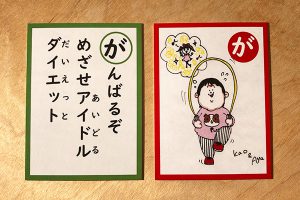 がんばるぞ
めざせアイドル
あいどる
ダイエット
だいえっと
が